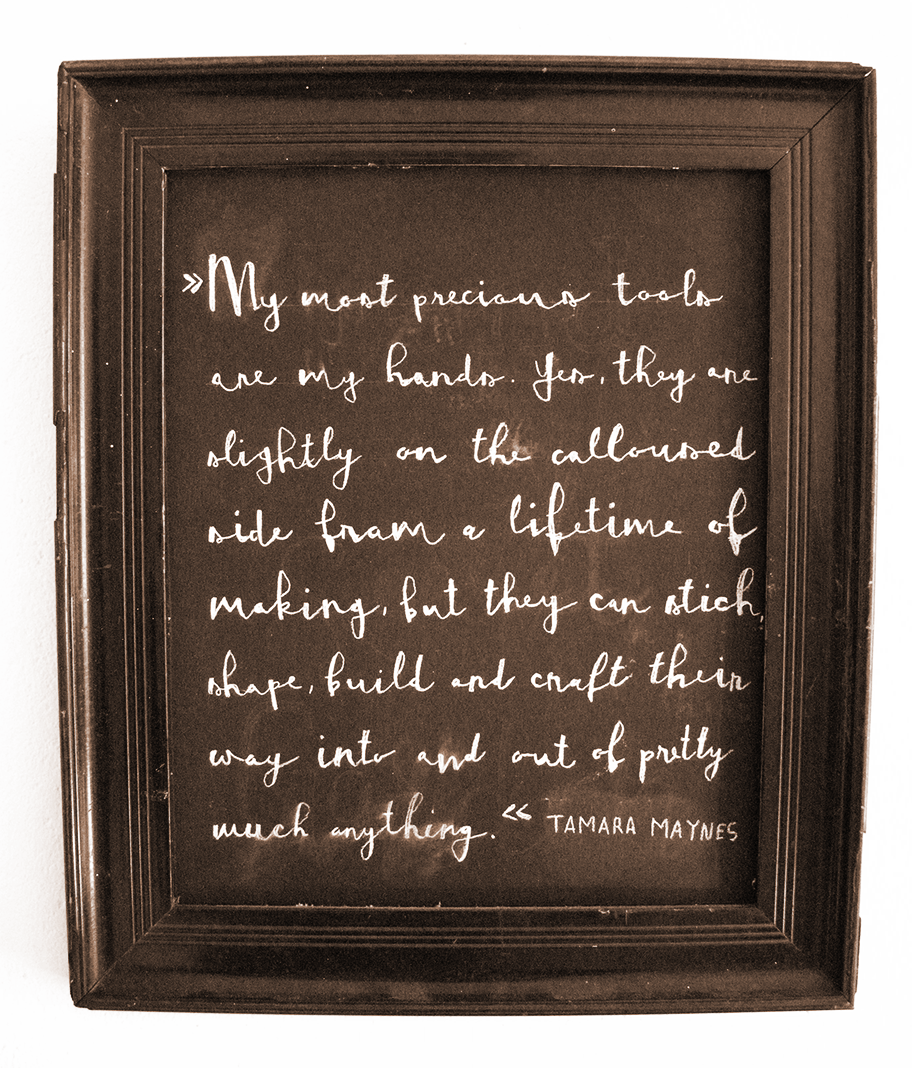 »My most precious tools
are my hands. Yes, they are
slightly on the calloused
side from a lifetime of
making, but they can stich,
shape, build and craft their
way into and out of pretty
much anything.« TAMARA MAYNES